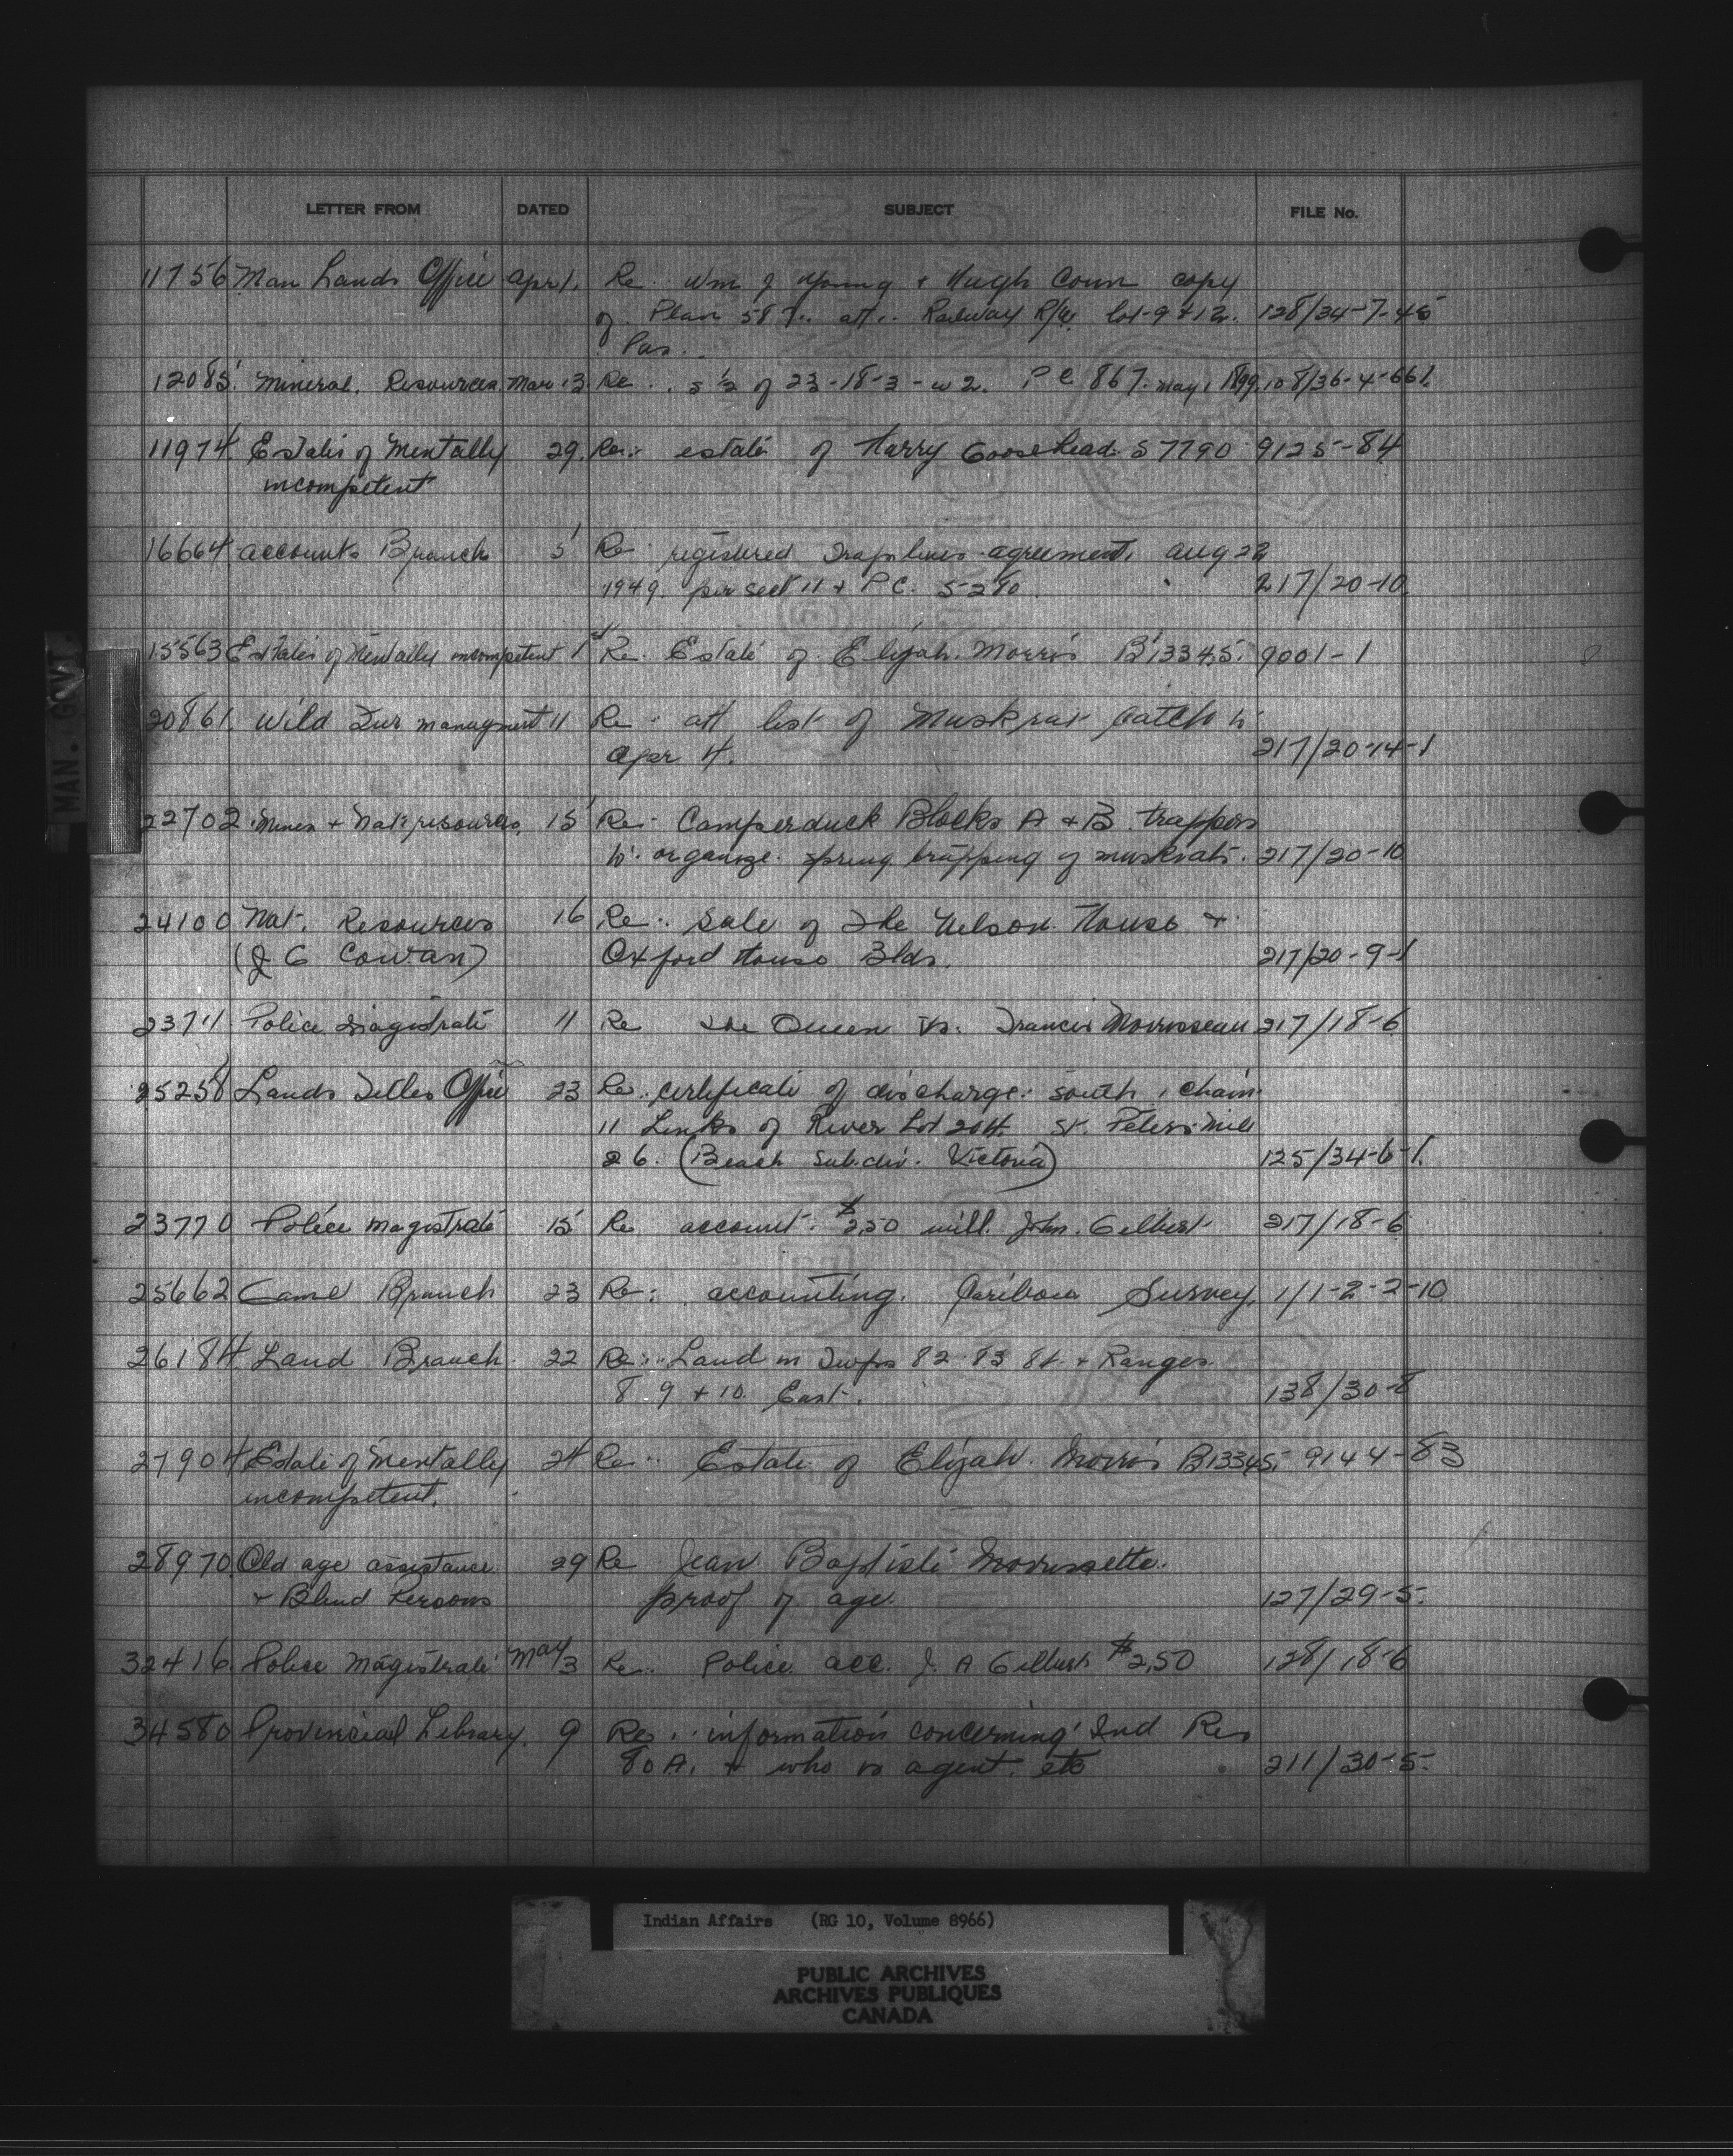 LETTER FROM DATED SUBJECT FILE No.
11756 Man Lands Office Apr 1. Re. Wm J Young & Hugh Conn copy
of Plan 58 att.. Railway R/W. lot-9 & 12. 128/34-7-45
Pas.
12085. Mineral. Resources. Mar 13 Re.. S ½ of 23-18-3-W2. PC 867. May 1 1899. 108/36-4-661.
11974. Estates of Mentally 29. Re.: estate of Harry Goosehead. S7790 9125-84
incompetent
16664 Accounts Branch 5 Re. registered Traplines agreement, Aug 22
1949. per sect 11 & P.C. 5-280. 217/20-10.
15563 Estates of Mentally incompetent 1st Re. Estate of Elijah. Morris B13345. 9001-1
20861. Wild Fur managment 11 Re. att list of Muskrat Catch to
Apr 4. 217/20-14-1
22702 Mines & Nat resources. 15 Re. Camperduck Blocks A & B. trappers
to. organize. spring trapping of muskrats. 217/20-10
24100 Nat. Resources 16 Re.. Sale of The Nelson House &
(J G Cowan) Oxford House Blds. 217/20-9-1
23711. Police Magistrate 11 Re The Queen vs. Francis Morrisseau 217/18-6
25258 Lands Titles Office 23 Re.. certificate of discharge. south 1 chain
11 Links of River Lot 204. St. Peters. Mile
26. (Beach Subdiv. Victoria) 125/34-6-1.
23770 Police magistrate 15 Re account. $2.50 will. John. Gilbert 217/18-6
25662 Game Branch 23 Re: accounting. Caribou Survey, 1/1-2-2-10
26184 Land Branch. 22 Re.. Land in Twps 82 83 84. & Ranges
8 9 & 10. East. 138/30-8
27904 Estate of Mentally 24 Re.. Estate of Elijah. Morris B13345. 9144-83
incompetent.
28970. Old age assistance 29 Re Jean Baptiste Morrissette.
& Blind Persons proof of age. 127/29-5.
32416. Police Magistrate May 3 Re.. Police acc. J. A Gilbert $2.50 128/18-6
34580 Provincial Library. 9 Re.. information concerning Ind Res
80A. & who is agent. etc 211/30-5-
MAN. GOVT
Indian Affairs (RG 10, Volume 8966)
PUBLIC ARCHIVES
ARCHIVES PUBLIQUES
CANADA